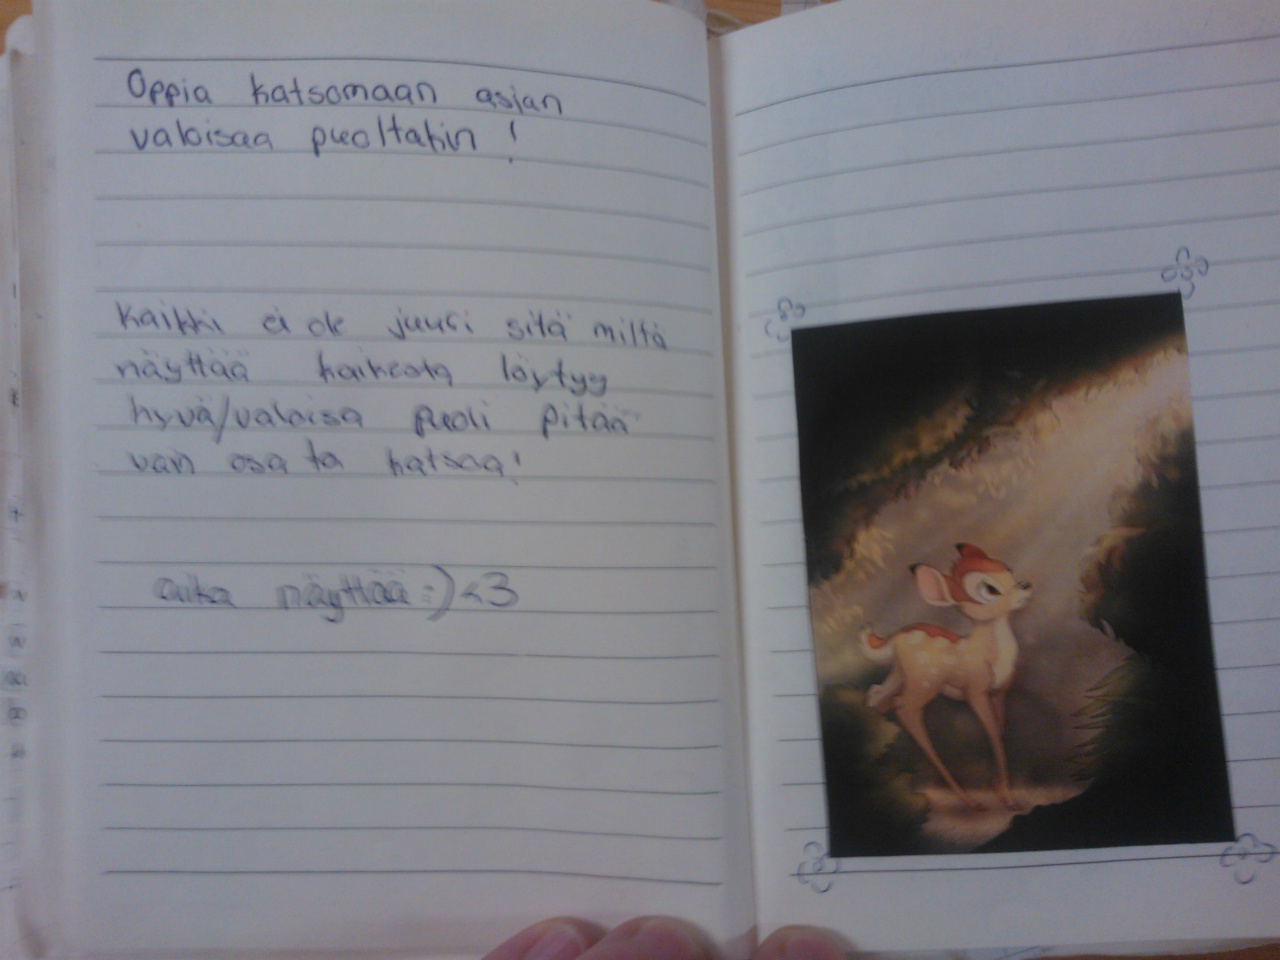 Oppia katsomaan asian
valoisaa puoltakin!
Kaikki ei ole juuri sitä miltä
näyttää kaikesta löytyy
hyvä/valoisa puoli pitää
vain osata katsoa!
aika näyttää :) <3